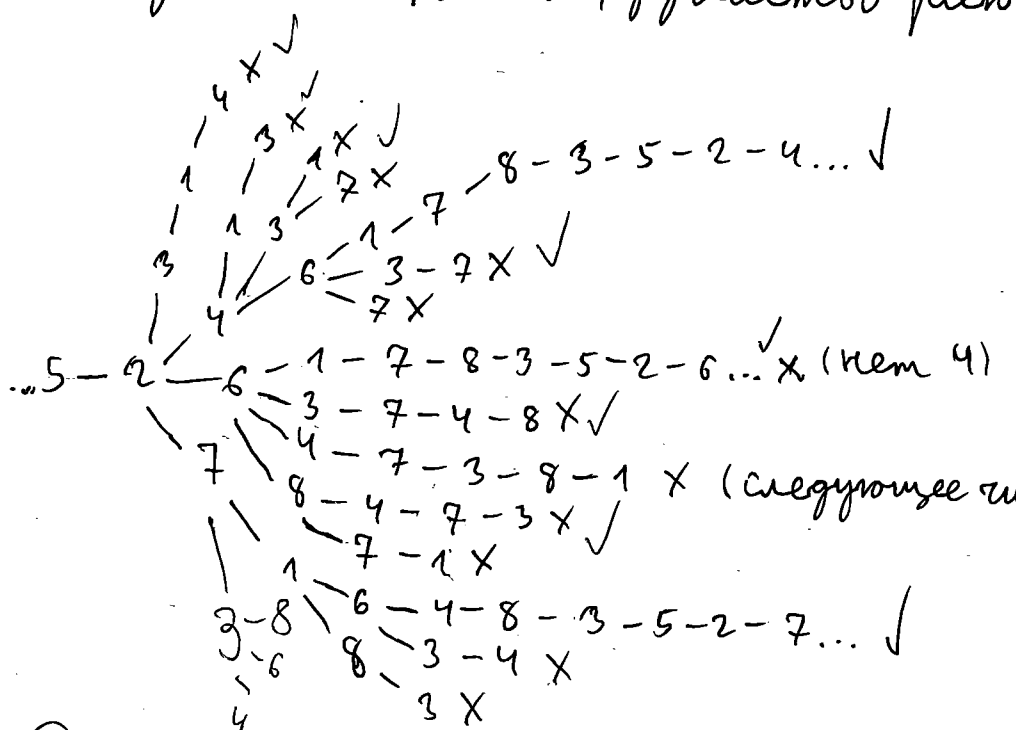 4 x ✓
3 x ✓
1 x ✓
7 x
8 - 3 - 5 - 2 - 4... ✓
1 1 3 1 7
3 6 3 - 7 x ✓
7 x
4
...5 - 2 - 6 - 1 - 7 - 8 - 3 - 5 - 2 - 6... ✓ x (нет 4)
3 - 7 - 4 - 8 x ✓
7 4 - 7 - 3 - 8 - 1 x (следующее
8 - 4 - 7 - 3 x ✓
7 - 1 x
1 6 - 4 - 8 - 3 - 5 - 2 - 7... ✓
3 - 8 8 3 - 4 x
6
4 3 x